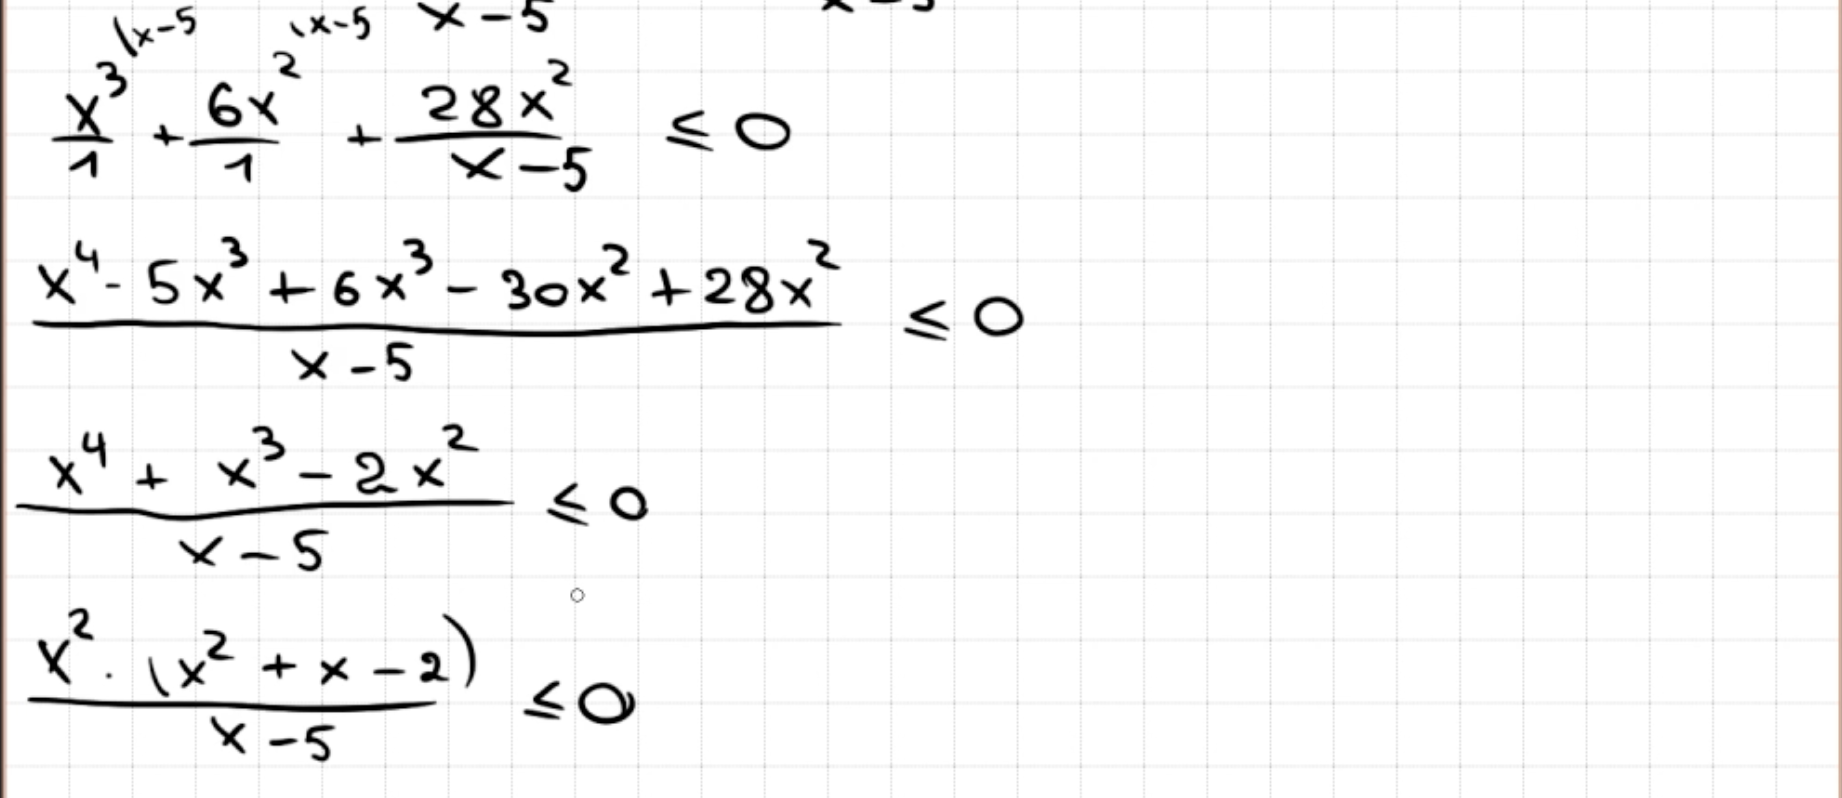 x - 5
x³/1 (x-5 + 6x²/1 (x-5 + 28x²/(x-5) ≤ 0
(x⁴ - 5x³ + 6x³ - 30x² + 28x²)/(x-5) ≤ 0
(x⁴ + x³ - 2x²)/(x-5) ≤ 0
x² · (x² + x - 2)/(x-5) ≤ 0